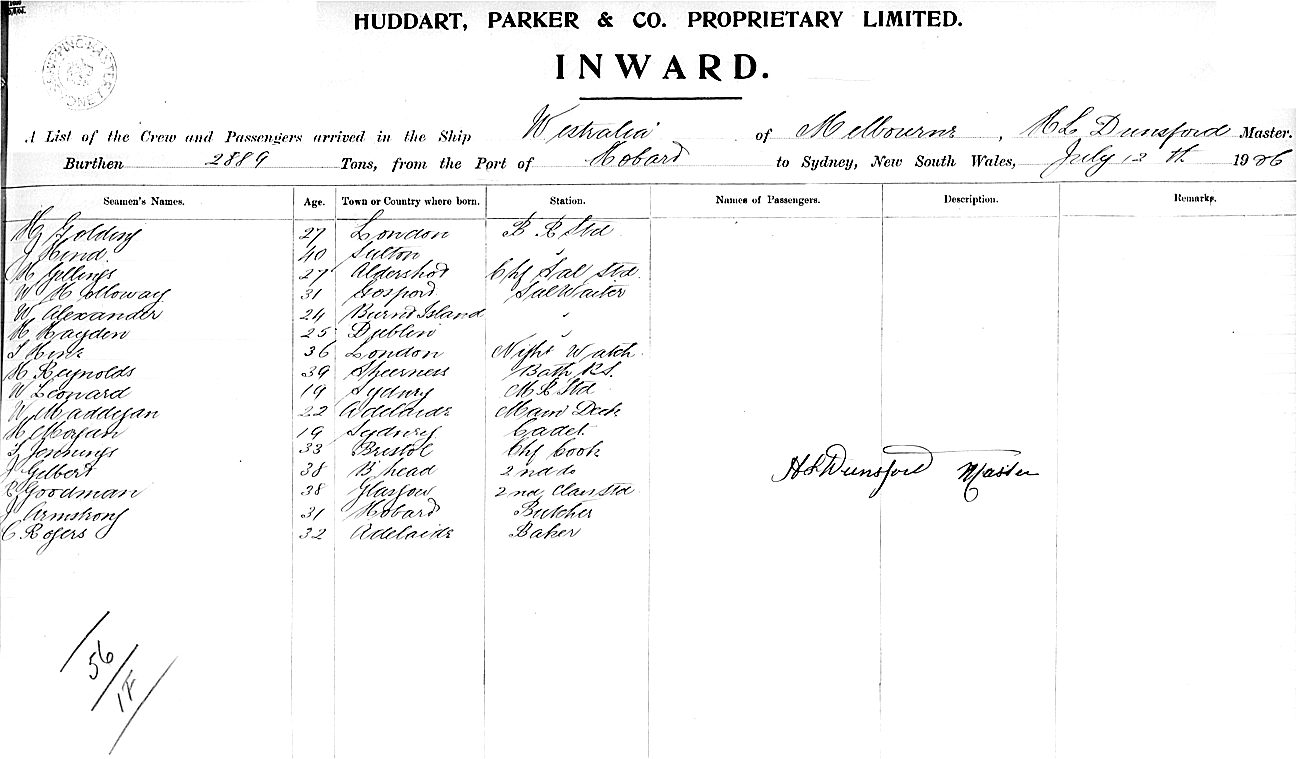 HUDDART, PARKER & CO. PROPRIETARY LIMITED.
INWARD.
SHIPPING MASTER SYDNEY
A List of the Crew and Passengers arrived in the Ship Westralia of Melbourne, H L Dunsford Master.
Burthen 2889 Tons, from the Port of Hobard to Sydney, New South Wales, July 12th 1926
Seamen's Names. Age. Town or Country where born. Station. Names of Passengers. Description. Remarks.
H Golding 27 London B R Std
J Hind. 40 Sutton "
H Gellings 27 Aldershot Chf Sal Std.
W Holloway 31 Gosport Sal Waiter
W Alexander 24 Burnt Island "
H Hayden 25 Dublin "
T Hine 36 London Night Watch.
H Reynolds 39 Sheerness Bath
W Leonard 19 Sydney M R Std
W Maddigan 22 Adelaide Main Deck
H Morgan 19 Sydney Cadet.
T Jennings 33 Bristol Chf Cook
J Gilbert 38 B'head 2nd do
E Goodman 38 Glasgow 2nd Class Std
J Armstrong 31 Hobard Butcher
C Rogers 32 Adelaide Baker
H L Dunsford Master
56
1F